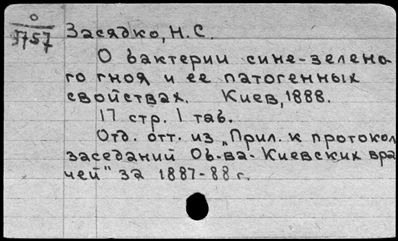 О
5757
Засядко, Н. С.
О бактерии сине-зелено-
го гноя и ее патогенных
свойствах. Киев, 1888.
17 стр. 1 таб.
Отд. отт. из „Прил. к протокол
заседаний Об-ва Киевских вра
чей" за 1887-88 г.